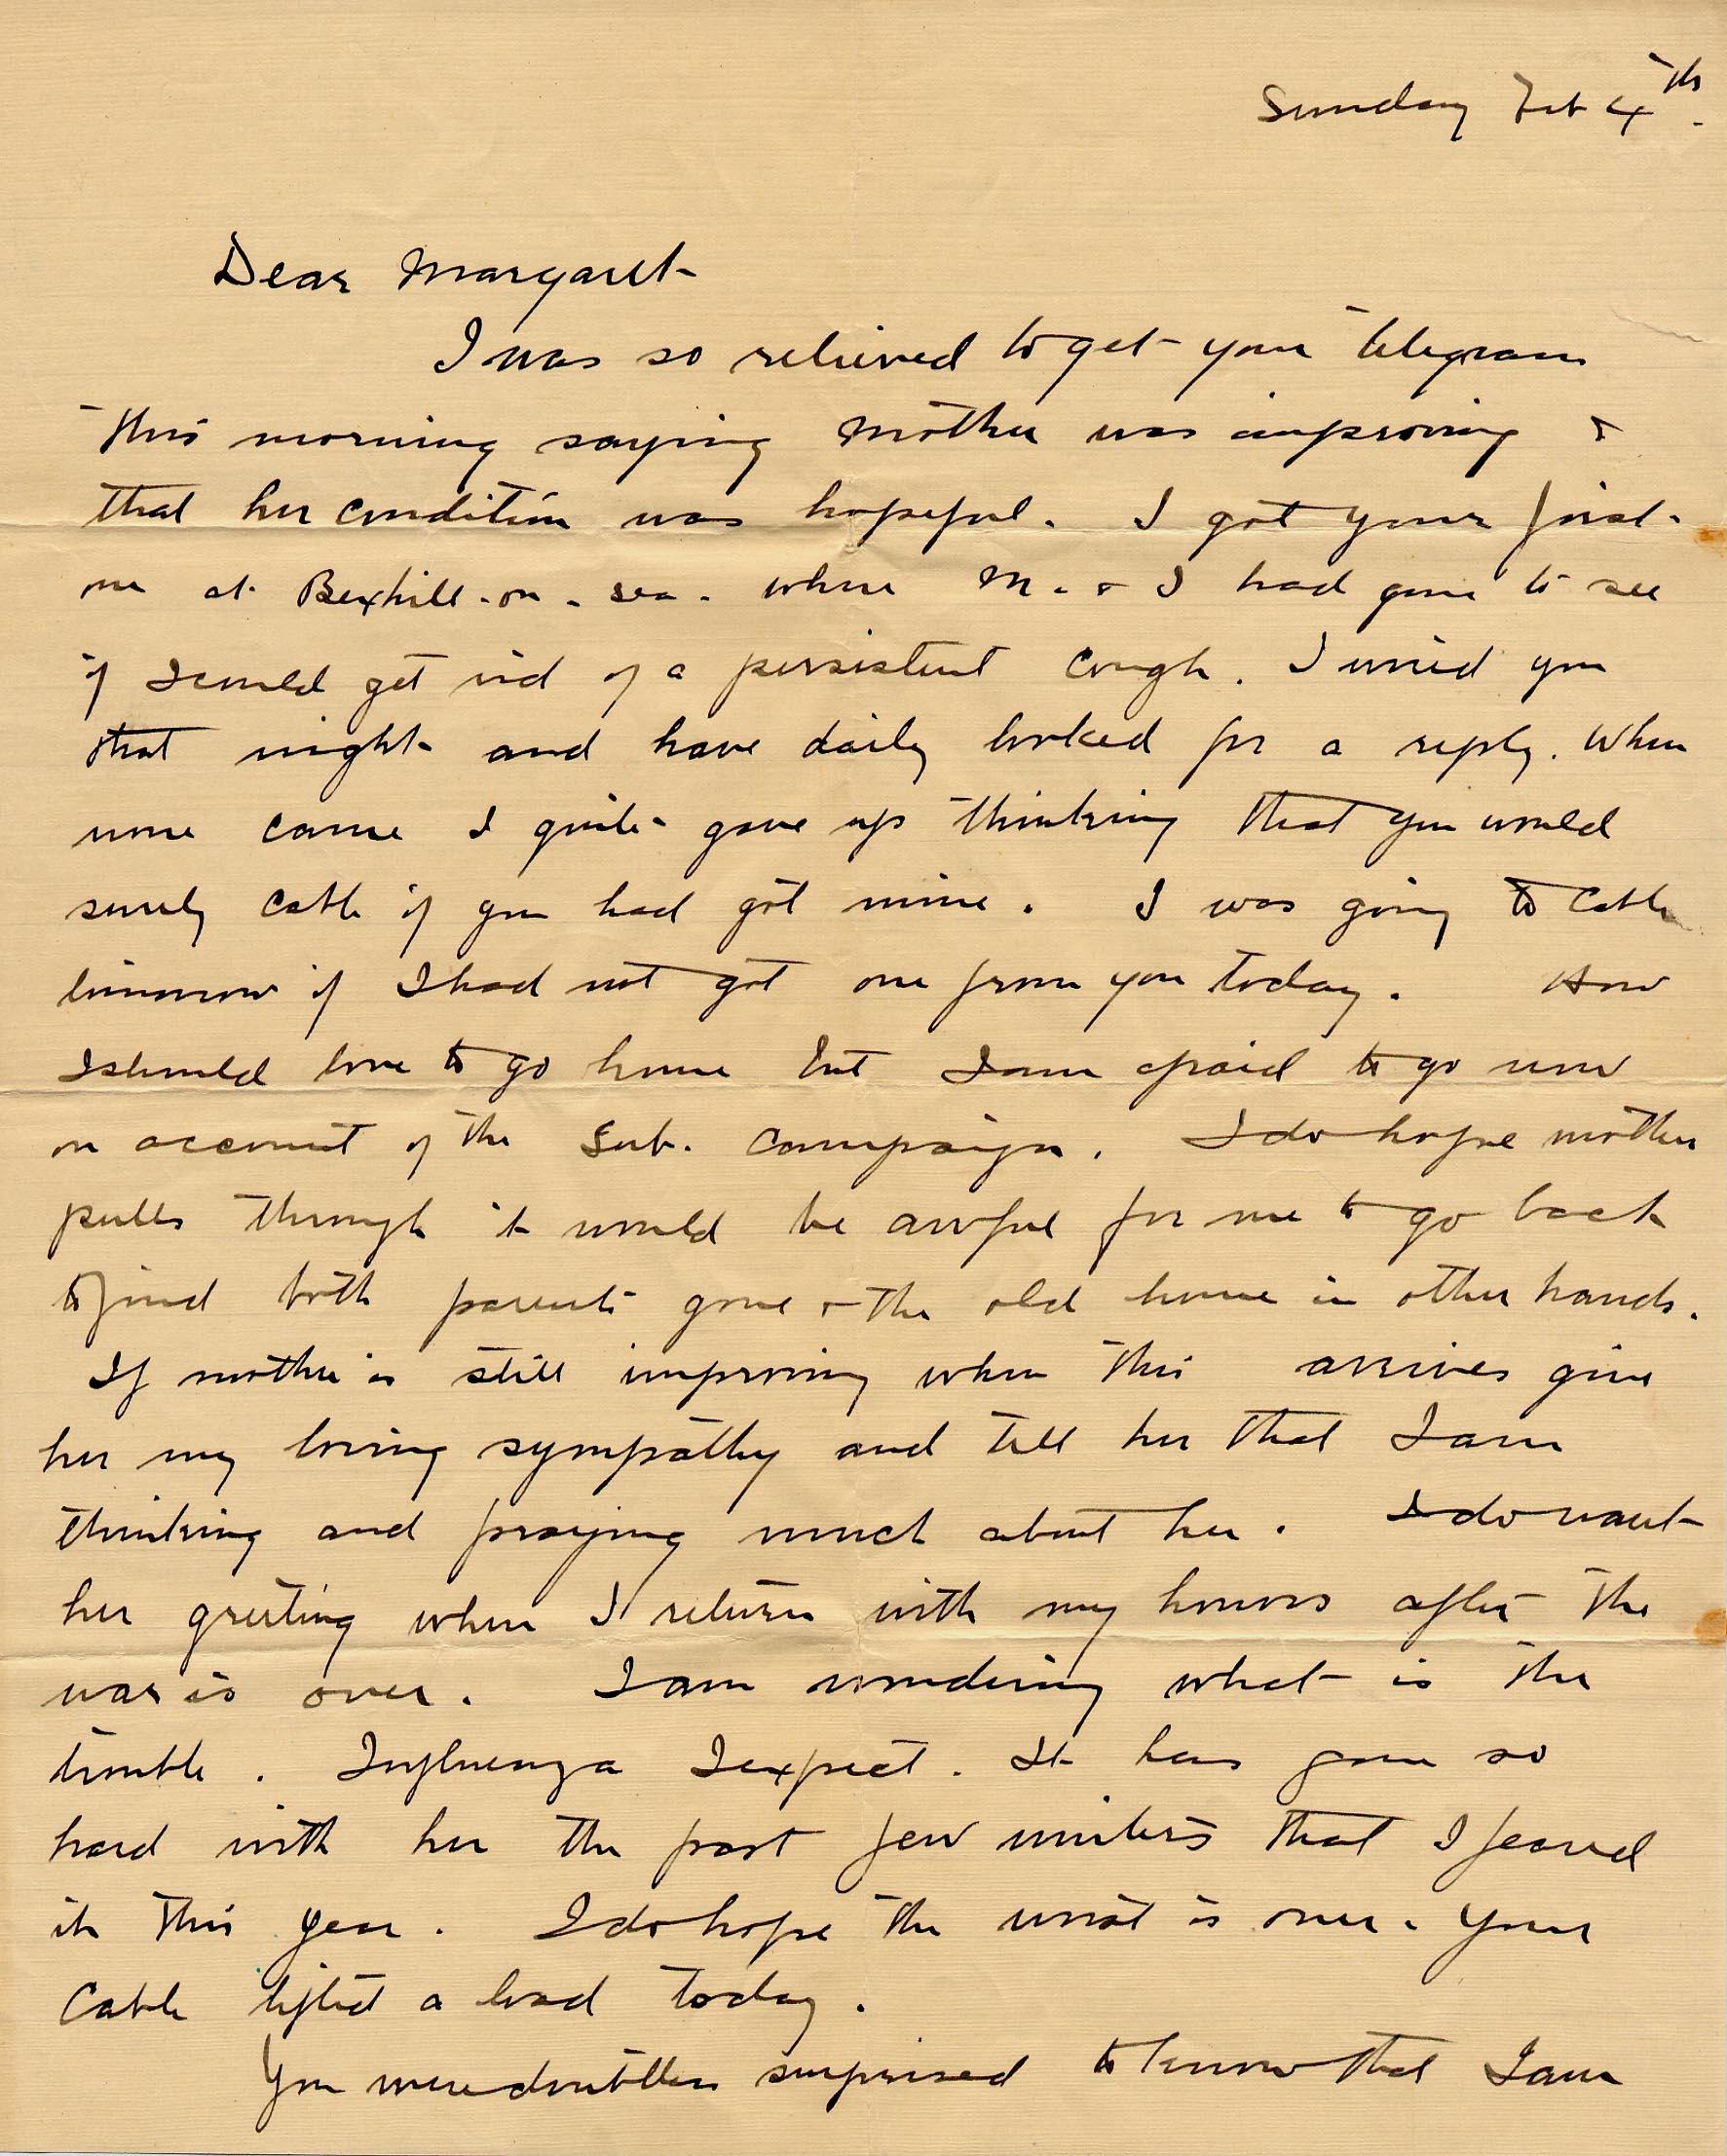 Sunday Feb 4th.
Dear Margaret
I was so relieved to get your telegram
this morning saying Mother was improving &
that her condition was hopeful. I got your first
one at Bexhill-on-sea. where M. & I had gone to see
if I could get rid of a persistent cough. I wired you
that night and have daily looked for a reply. When
none came I quite gave up thinking that you would
surely cable if you had got mine. I was going to cable
tomorrow if I had not got one from you today. How
I should love to go home but I am afraid to go now
on account of the Sub. campaign. I do hope mother
pulls through it would be awful for me to go back
to find both parents gone & the old home in other hands.
If mother is still improving when this arrives give
her my loving sympathy and tell her that I am
thinking and praying much about her. I do want
her greeting when I return with my honors after the
war is over. I am wondering what is the
trouble. Influenza I expect. It has gone so
hard with her the past few winters that I feared
it this year. I do hope the worst is over. Your
cable lifted a load today.
You were doubtless surprised to know that I am